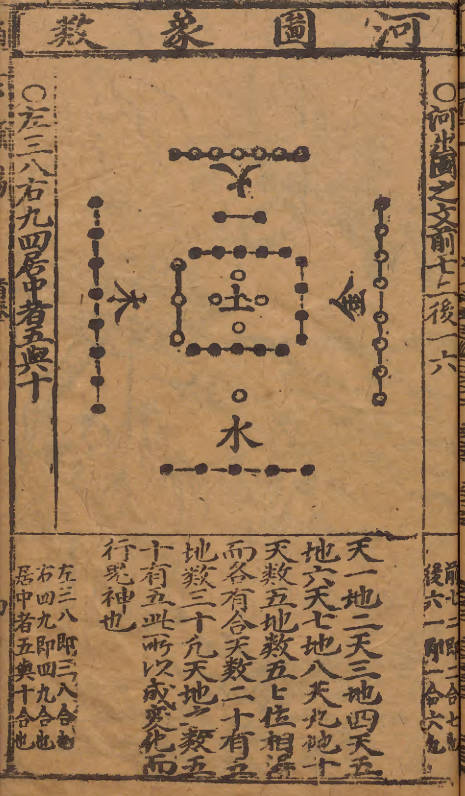 河圖象数
○河出圖之文前七二後一六
○左三八右九四居中者五與十
火
木
土
金
水
前七二即二合七也
後六一即一合六也
天一地二天三地四天五
地六天七地八天九地十
天数五地数五五位相得
而各有合天数二十有五
地数三十凡天地之数五
十有五此所以成变化而
行鬼神也
左三八即三八合也
右四九即四九合也
居中者五與十合也